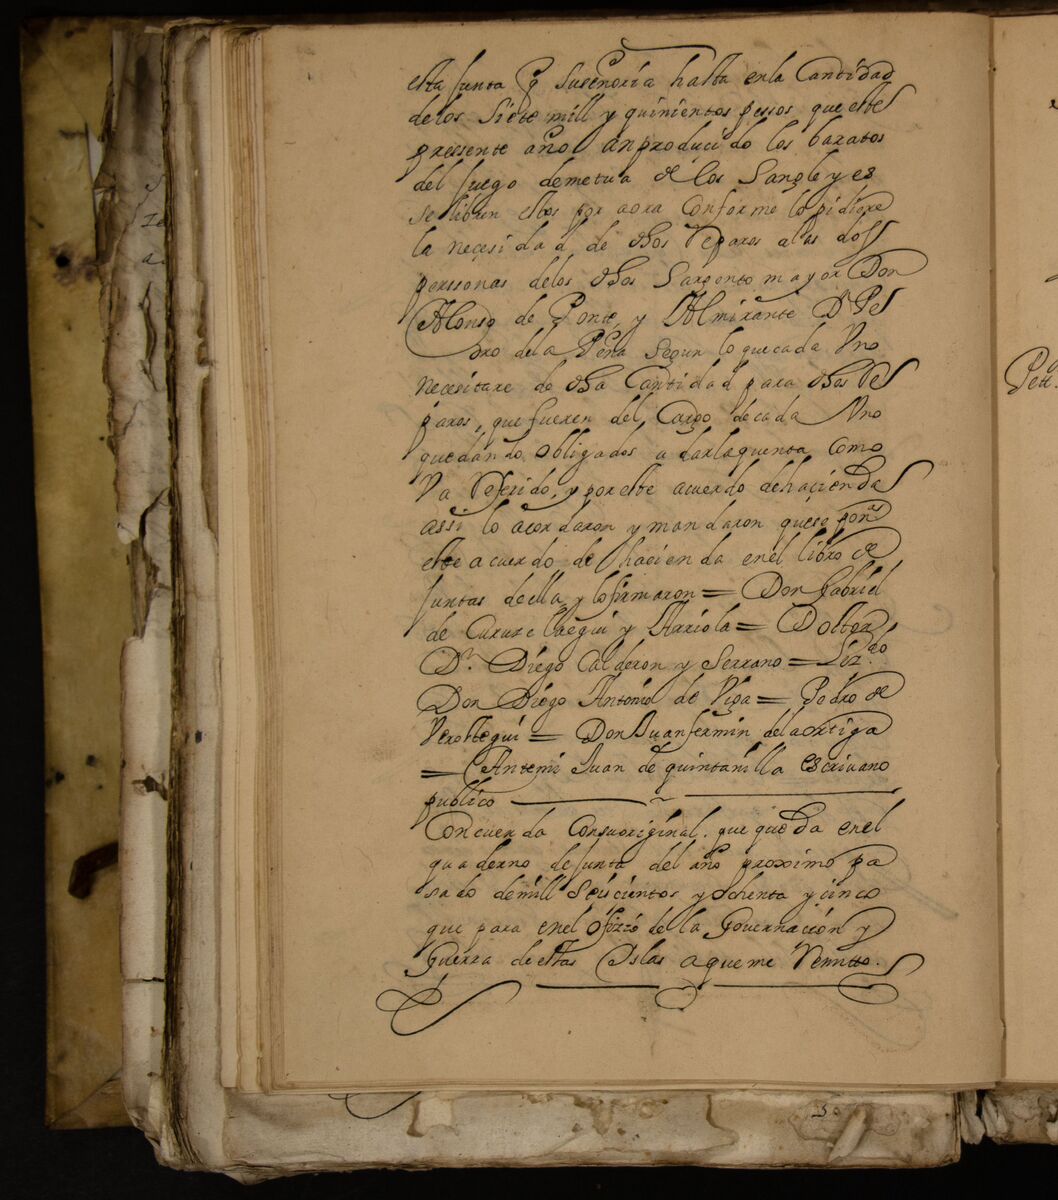 esta Junta q̃ suseñoría hasta enla Cantidad
delos siete mill y quinientos pessos que este
pressente año anproducido los baratos
del juego demetua de los Sangleyes
se libren estos por aora Conforme lo pidiere
la necesidad de dhos Reparos alas dos
perssonas delos dhos Sargento mayor Don
Alonso de Ponte, y Almirante Dn Pe
dro dela Peña segun lo quecada Vno
necesitare de dha Cantidad para dhos Re
paros, que fueren del Cargo decada Vno
quedando obligados a darla quenta como
Va Referido, y poreste acuerdo dehacienda
assi lo acordaron y mandaron quese ponga
este acuerdo de hacienda enel libro de
Juntas della y lo firmaron = Don Gabriel
de Curuzelaegui y Arriola = Doctor
Dn. Diego Calderon y Serrano = Lizdo
Don Diego Antonio de Viga = Pedro de
Verastegui = Don Juanfermin delaortiga
= Antemi Juan de quintanilla escrivano
publico
Concuerda Consuoriginal. que queda enel
quaderno deJunta del año proximo pa
sado demill seiscientos y ochenta y cinco
que para enel ofizio de la Governacion y
Guerra destas Islas aqueme Remito.